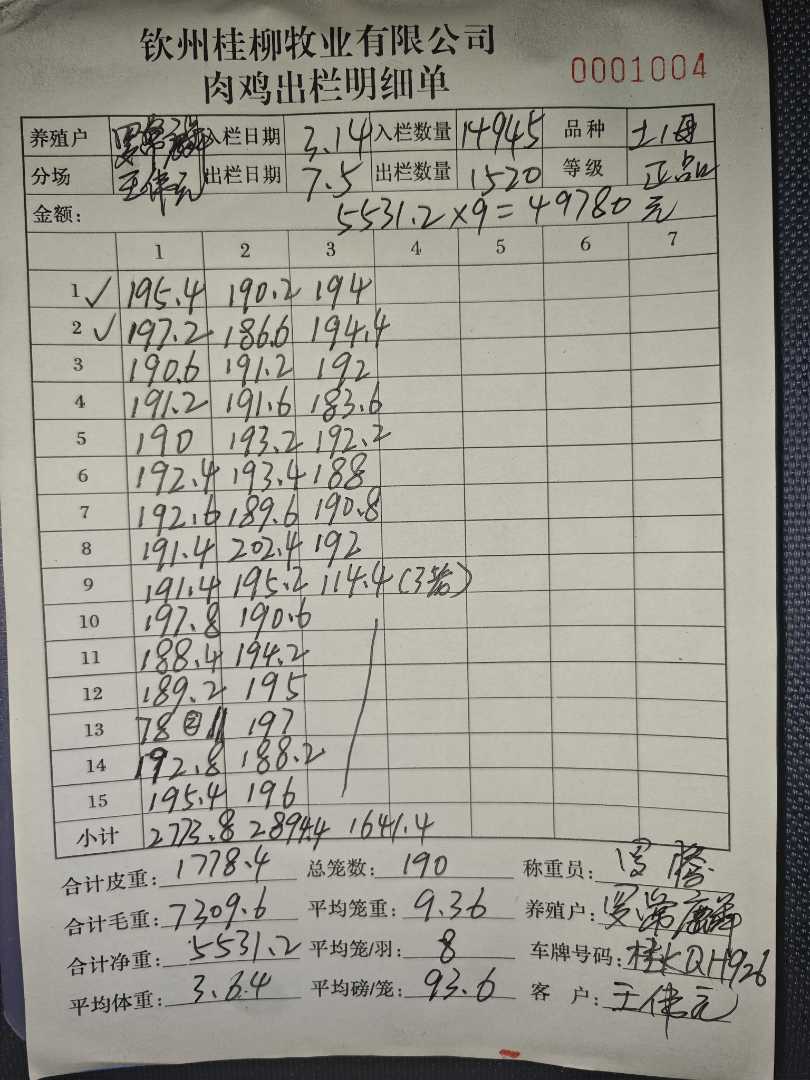 钦州桂柳牧业有限公司
肉鸡出栏明细单 0001004
养殖户 罗常麟 入栏日期 3.14 入栏数量 14945 品种 土1母
分场 王伟元 出栏日期 7.5 出栏数量 1520 等级 正品
金额: 5531.2×9=49780元
1 2 3 4 5 6 7
1 ✓ 195.4 190.2 194
2 ✓ 197.2 186.6 194.4
3 190.6 191.2 192
4 191.2 191.6 183.6
5 190 193.2 192.2
6 192.4 193.4 188
7 192.6 189.6 190.8
8 191.4 202.4 192
9 191.4 195.2 114.4(3笼)
10 197.8 190.6
11 188.4 194.2
12 189.2 195
13 78② 197
14 192.8 188.2
15 195.4 196
小计 2773.8 2894.4 1641.4
合计皮重: 1778.4 总笼数: 190 称重员: 罗
合计毛重: 7309.6 平均笼重: 9.36 养殖户: 罗常麟
合计净重: 5531.2 平均笼/羽: 8 车牌号码: 桂KQH926
平均体重: 3.64 平均磅/笼: 93.6 客户: 王伟元